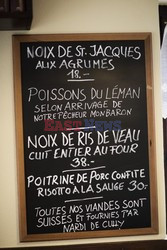 NOIX DE ST. JACQUES
AUX AGRUMES
18.-
POISSONS DU LÉMAN
SELON ARRIVAGE DE
NOTRE PÊCHEUR MONBARON
EAST NEWS
NOIX DE RIS DE VEAU
CUIT ENTIER AU FOUR
38.-
POITRINE DE PORC CONFITE
RISOTTO À LA SAUGE 30.-
TOUTES NOS VIANDES SONT
SUISSES ET FOURNIES PAR
NARDI DE CULLY